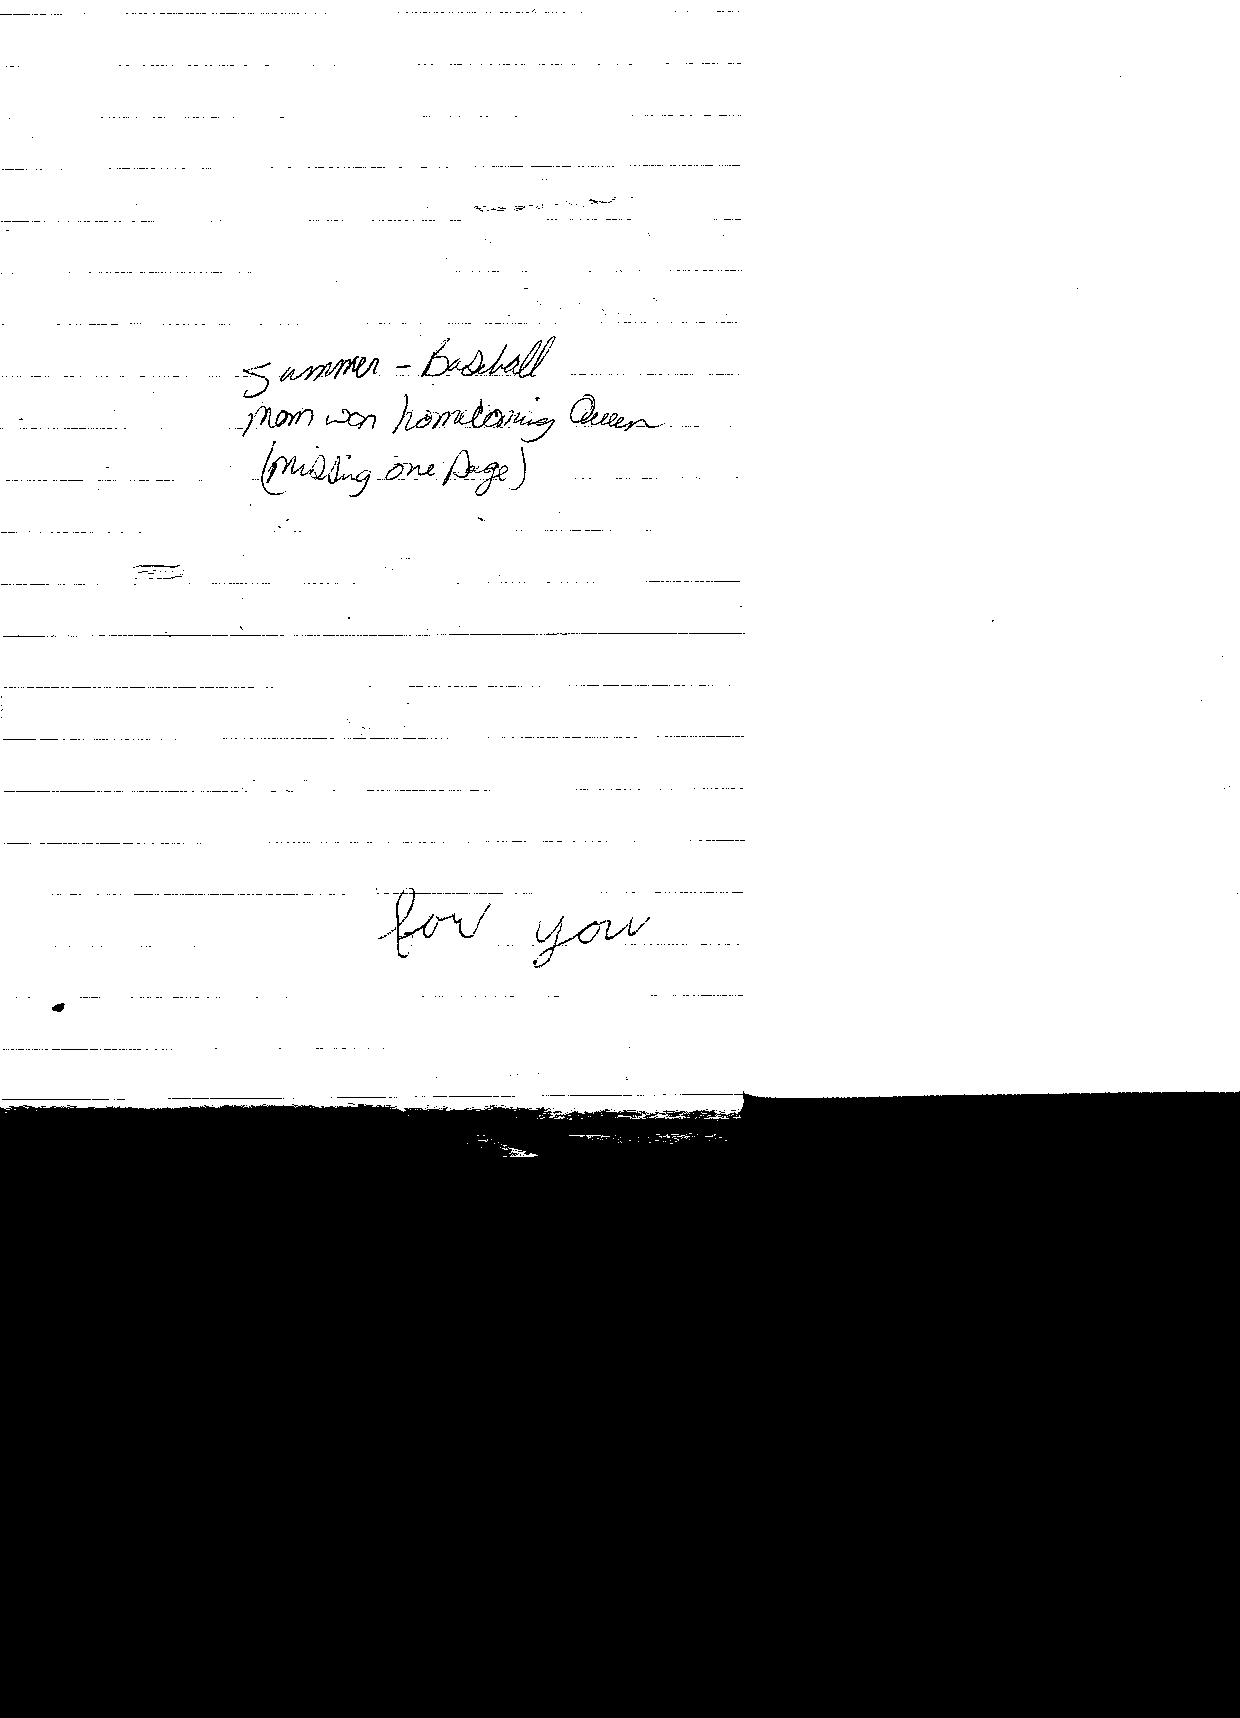 Summer - Baseball
Mom won homecoming Queen
(missing one page)
for you